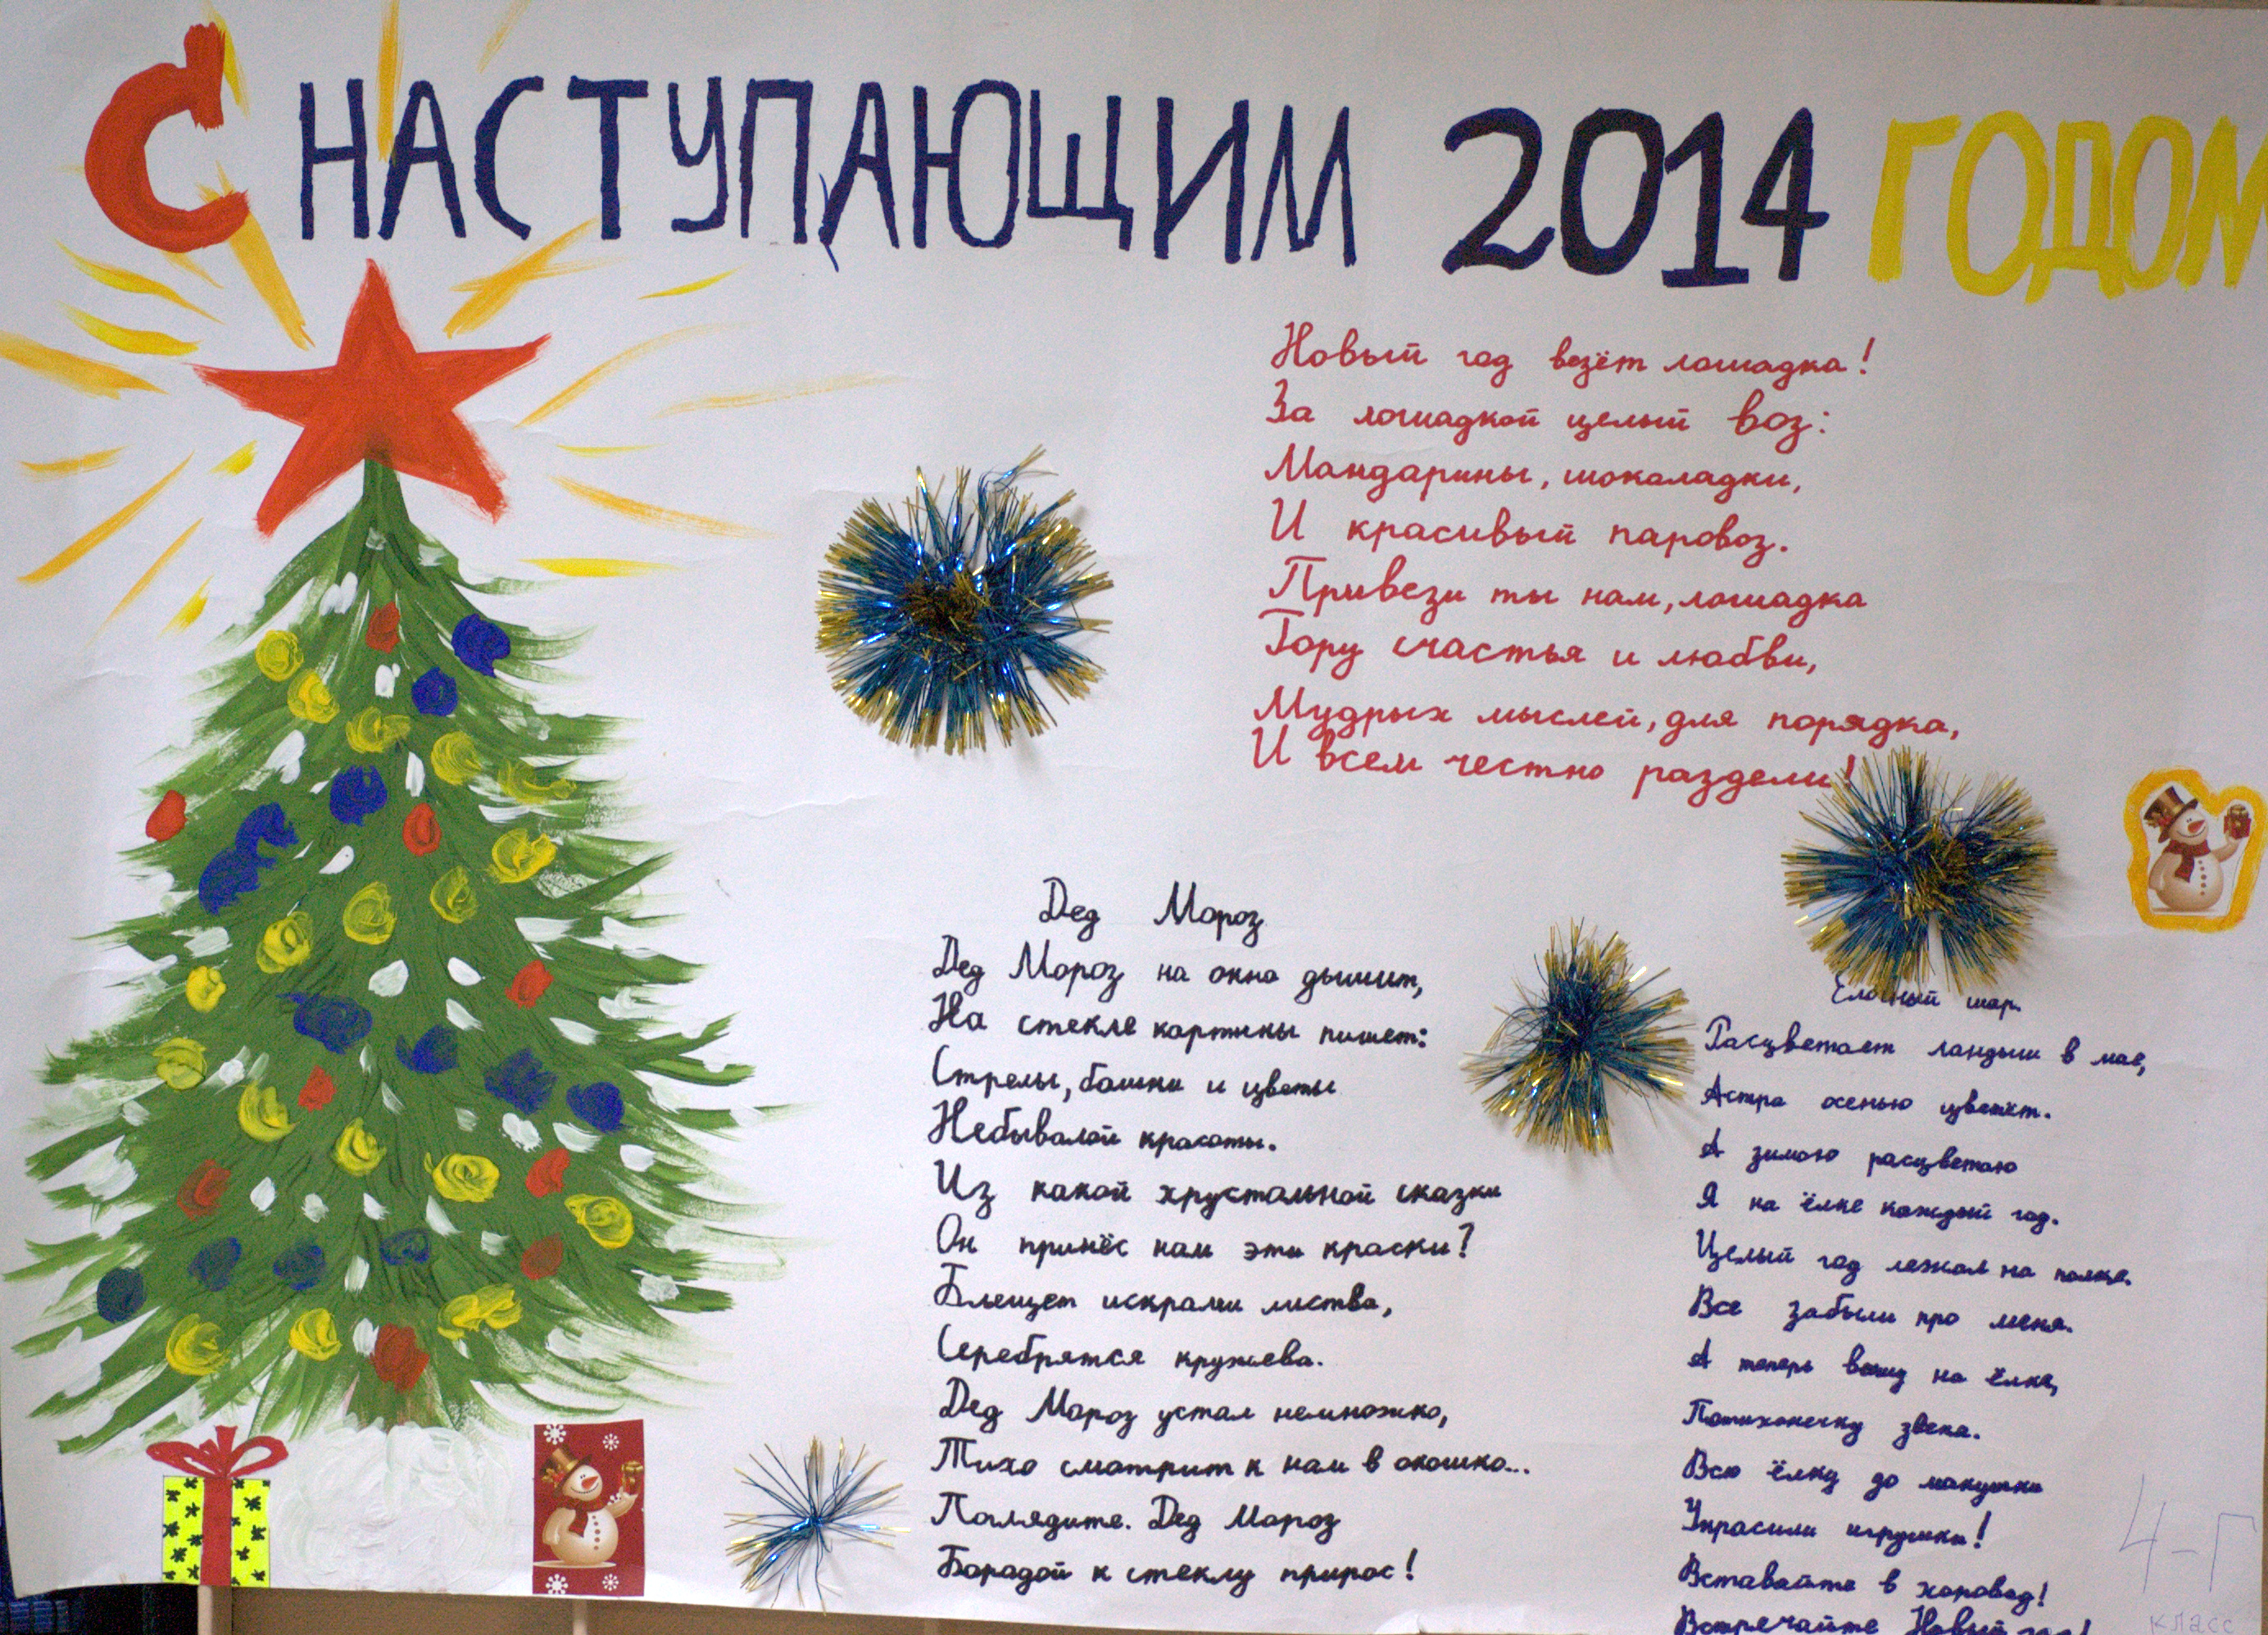 С НАСТУПАЮЩИМ 2014 ГОДОМ
Новый год везёт лошадка!
За лошадкой целый воз:
Мандарины, шоколадки,
И красивый паровоз.
Привези ты нам, лошадка
Гору счастья и любви,
Мудрых мыслей, для порядка,
И всем честно раздели!
Дед Мороз
Дед Мороз на окна дышит,
На стекле картины пишет:
Стрелы, башни и цветы
Небывалой красоты.
Из какой хрустальной сказки
Он принёс нам эти краски?
Блещет искрами листва,
Серебрятся кружева.
Дед Мороз устал немножко,
Тихо смотрит к нам в окошко...
Поглядите. Дед Мороз
Бородой к стеклу прирос!
Ёлочный шар.
Расцветает ландыш в мае,
Астра осенью цветёт.
А зимою расцветаю
Я на ёлке каждый год.
Целый год лежал на полке.
Все забыли про меня.
А теперь вишу на ёлке,
Потихонечку звеня.
Всю ёлку до макушки
Украсили игрушки!
Вставайте в хоровод!
Встречайте Новый год!
4-Г
класс